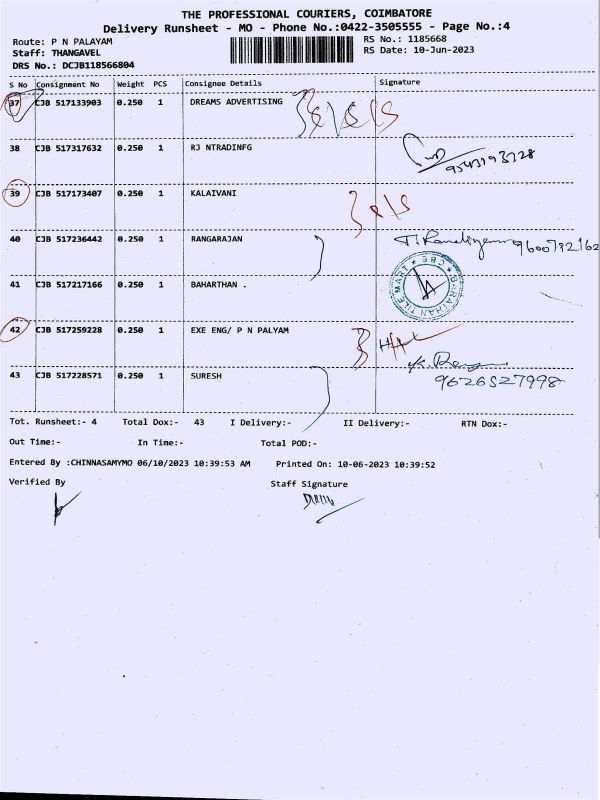 THE PROFESSIONAL COURIERS, COIMBATORE
Delivery Runsheet - MO - Phone No.:0422-3505555 - Page No.:4
Route: P N PALAYAM RS No.: 1185668
Staff: THANGAVEL RS Date: 10-Jun-2023
DRS No.: DCJB118566804
S No Consignment No Weight PCS Consignee Details Signature
37 CJB 517133903 0.250 1 DREAMS ADVERTISING
38 CJB 517317632 0.250 1 RJ NTRADINFG
39 CJB 517173407 0.250 1 KALAIVANI
40 CJB 517236442 0.250 1 RANGARAJAN
41 CJB 517217166 0.250 1 BAHARTHAN .
42 CJB 517259228 0.250 1 EXE ENG/ P N PALYAM
43 CJB 517228571 0.250 1 SURESH
9626527998
Tot. Runsheet:- 4 Total Dox:- 43 I Delivery:- II Delivery:- RTN Dox:-
Out Time:- In Time:- Total POD:-
Entered By :CHINNASAMYMO 06/10/2023 10:39:53 AM Printed On: 10-06-2023 10:39:52
Verified By Staff Signature